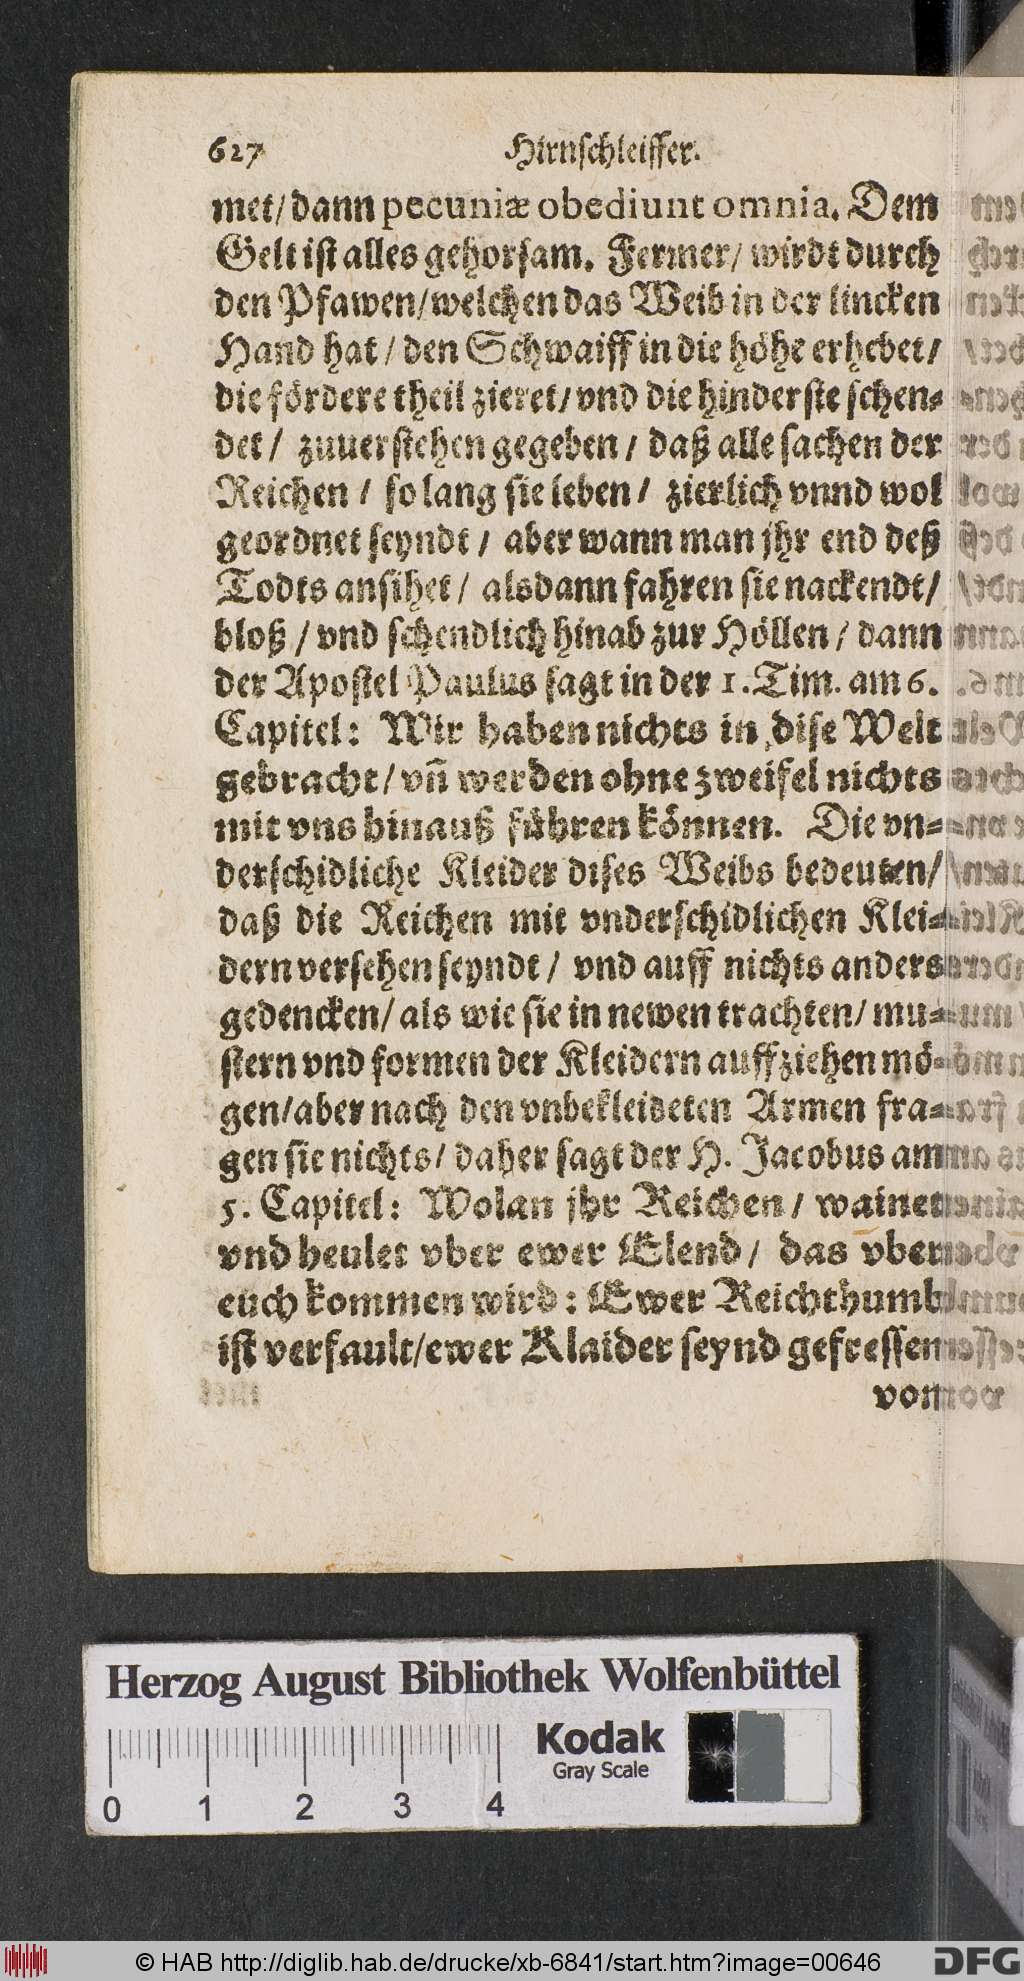 627 Hirnschleiffer.
met/ dann pecuniæ obediunt omnia. Dem
Gelt ist alles gehorsam. Ferrner/ wirdt durch
den Pfawen/ welchen das Weib in der lincken
Hand hat / den Schwaiff in die höhe erhebet/
die fördere theil zieret/ vnd die hinderste schen-
det / zuuerstehen gegeben / daß alle sachen der
Reichen / so lang sie leben / zierlich vnnd wol
geordnet seyndt / aber wann man jhr end deß
Todts ansihet / alsdann fahren sie nackendt/
bloß / vnd schendlich hinab zur Höllen / dann
der Apostel Paulus sagt in der 1. Tim. am 6.
Capitel: Wir haben nichts in dise Welt
gebracht/ vñ werden ohne zweifel nichts
mit vns hinauß führen können. Die vn-
derschidliche Kleider dises Weibs bedeuten/
daß die Reichen mit vnderschidlichen Klei-
dern versehen seyndt / vnd auff nichts anders
gedencken/ als wie sie in newen trachten/ mu-
stern vnd formen der Kleidern auffziehen mö-
gen/ aber nach den vnbekleideten Armen fra-
gen sie nichts/ daher sagt der H. Jacobus am
5. Capitel: Wolan jhr Reichen / wainet
vnd heulet vber ewer Elend / das vber
euch kommen wird : Ewer Reichthumb
ist verfault/ ewer Klaider seynd gefressen
von
Herzog August Bibliothek Wolfenbüttel
Kodak
Gray Scale
0 1 2 3 4
© HAB http://diglib.hab.de/drucke/xb-6841/start.htm?image=00646
DFG